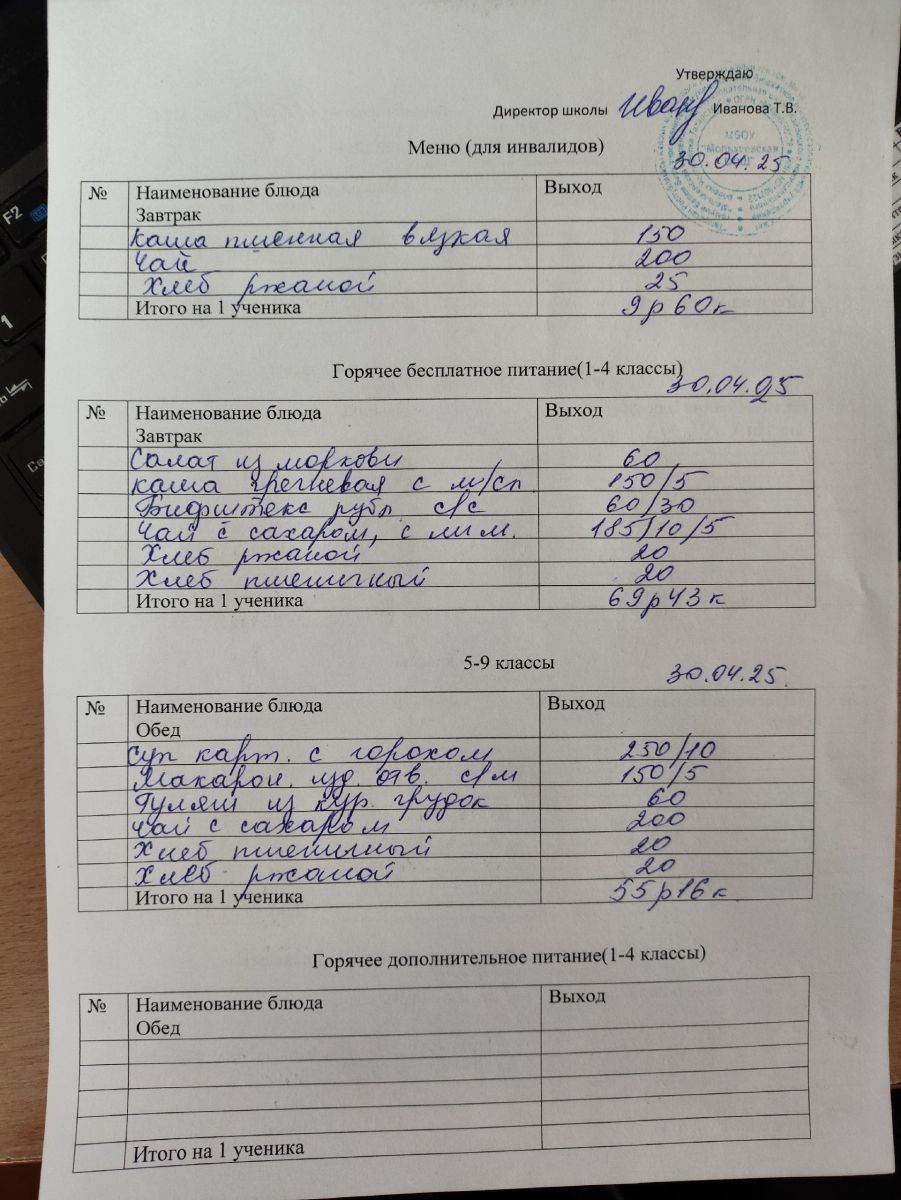 Утверждаю
Директор школы Иванова Т.В.
МБОУ
Меню (для инвалидов) 30.04.25
№ Наименование блюда Выход
Завтрак
Каша пшенная вязкая 150
Чай 200
Хлеб ржаной 25
Итого на 1 ученика 9р 60к
Горячее бесплатное питание(1-4 классы) 30.04.25
№ Наименование блюда Выход
Завтрак
Салат из моркови 60
каша гречневая с м/сл. 150/5
Бифштекс рубл с/с 60/30
Чай с сахаром, с лим. 185/10/5
Хлеб ржаной 20
Хлеб пшеничный 20
Итого на 1 ученика 69р43к
5-9 классы 30.04.25.
№ Наименование блюда Выход
Обед
Суп карт. с горохом 250/10
Макарон. изд. отв. с/м 150/5
Гуляш из кур. грудок 60
Чай с сахаром 200
Хлеб пшеничный 20
Хлеб ржаной 20
Итого на 1 ученика 55р16к
Горячее дополнительное питание(1-4 классы)
№ Наименование блюда Выход
Обед
Итого на 1 ученика
F2
1